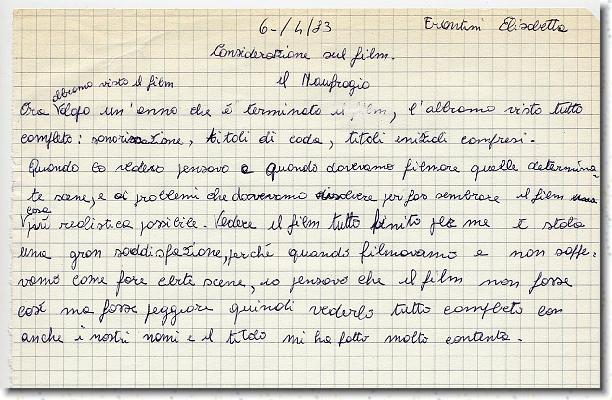 6-/4/83 Erontini Elisabetta
Considerazione sul film.
il Naufragio
abbiamo visto il film
Ora dopo un'anno che è terminato il film, l'abbiamo visto tutto
completo: sonorizzazione, titoli di coda, titoli iniziali compresi.
Quando lo vedevo pensavo a quando dovevamo filmare quelle determina-
te scene, e ai problemi che dovevamo risolvere per far sembrare il film una
cosa
più realistica possibile. Vedere il film tutto finito per me è stata
una gran soddisfazione, perché quando filmavamo e non sape-
vamo come fare certe scene, io pensavo che il film non fosse
così ma fosse peggiore quindi vederlo tutto completo con
anche i nostri nomi e il titolo mi ha fatto molto contenta.